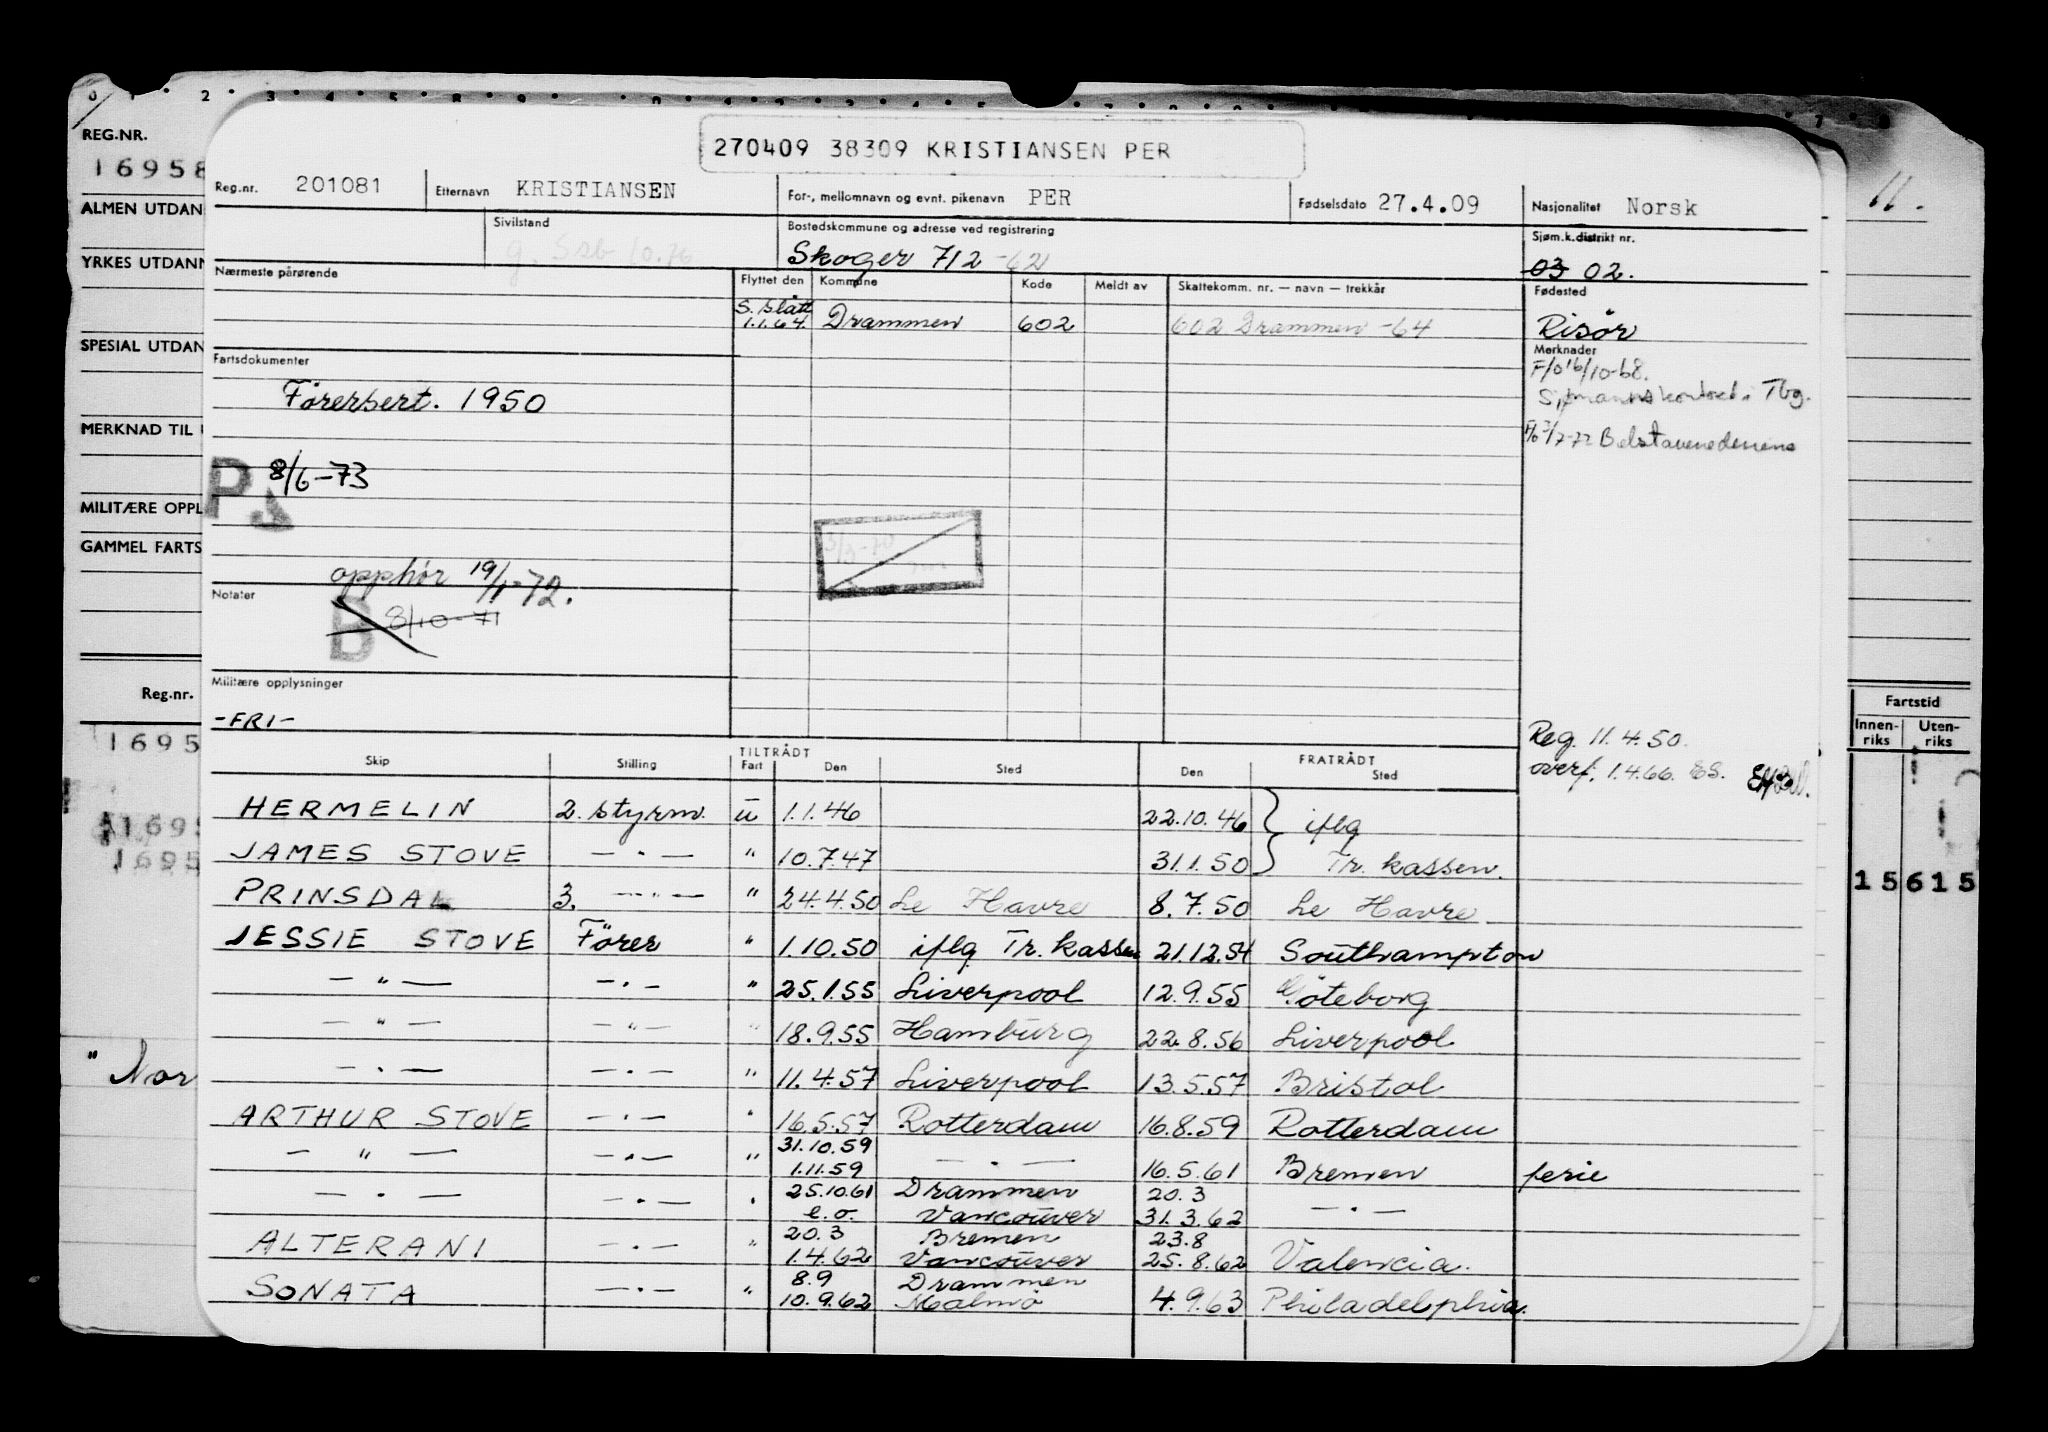 270409 38309 KRISTIANSEN PER
Reg.nr. 201081 Etternavn KRISTIANSEN For-, mellomnavn og evnt. pikenavn PER Fødselsdato 27.4.09 Nasjonalitet Norsk
Sivilstand Bostedskommune og adresse ved registrering Sjøm.k.distrikt nr.
g. Skoger 712 -62 03 02.
Nærmeste pårørende Flyttet den Kommune Kode Meldt av Skattekomm. nr. — navn — trekkår Fødested
S. slått
1.1.64 Drammen 602 602 Drammen -64 Risör
Fartsdokumenter Merknader
F/o 16/10-68.
Førersert. 1950 Sjømannskontoret i Tbg.
8/6-73
P
opphör 19/1-72.
Notater
B 8/10-71
Militære opplysninger
-FRI-
Reg. 11.4.50.
overf. 1.4.66. ES.
TILTRÅDT FRATRÅDT
Skip Stilling Fart Den Sted Den Sted
HERMELIN 2. styrm. u 1.1.46 22.10.46 } iflg
JAMES STOVE — " — " 10.7.47 31.1.50 } Tr. kassen.
PRINSDAL 3. — " — " 24.4.50 Le Havre 8.7.50 Le Havre
JESSIE STOVE Förer " 1.10.50 iflg Tr. kassen 21.12.54 Southampton
— " — — " — " 25.1.55 Liverpool 12.9.55 Göteborg
— " — — " — " 18.9.55 Hamburg 22.8.56 Liverpool
— " — — " — " 11.4.57 Liverpool 13.5.57 Bristol
ARTHUR STOVE — " — " 16.5.57 Rotterdam 16.8.59 Rotterdam
31.10.59
— " — — " — " 1.11.59 — " — 16.5.61 Bremen ferie
25.10.61 Drammen 20.3
— " — — " — " e.o. Vancouver 31.3.62 — " —
20.3 Bremen 23.8
ALTERANI — " — " 1.4.62 Vancouver 25.8.62 Valencia.
8.9 Drammen
SONATA — " — " 10.9.62 Malmö 4.9.63 Philadelphia.
REG.NR.
16958
ALMEN UTDAN
YRKES UTDANN
SPESIAL UTDAN
MERKNAD TIL
MILITÆRE OPPL
GAMMEL FARTS
Reg.nr.
1695
1695
1695
" Nor
11.
Fartstid
Innen-riks Uten-riks
15615